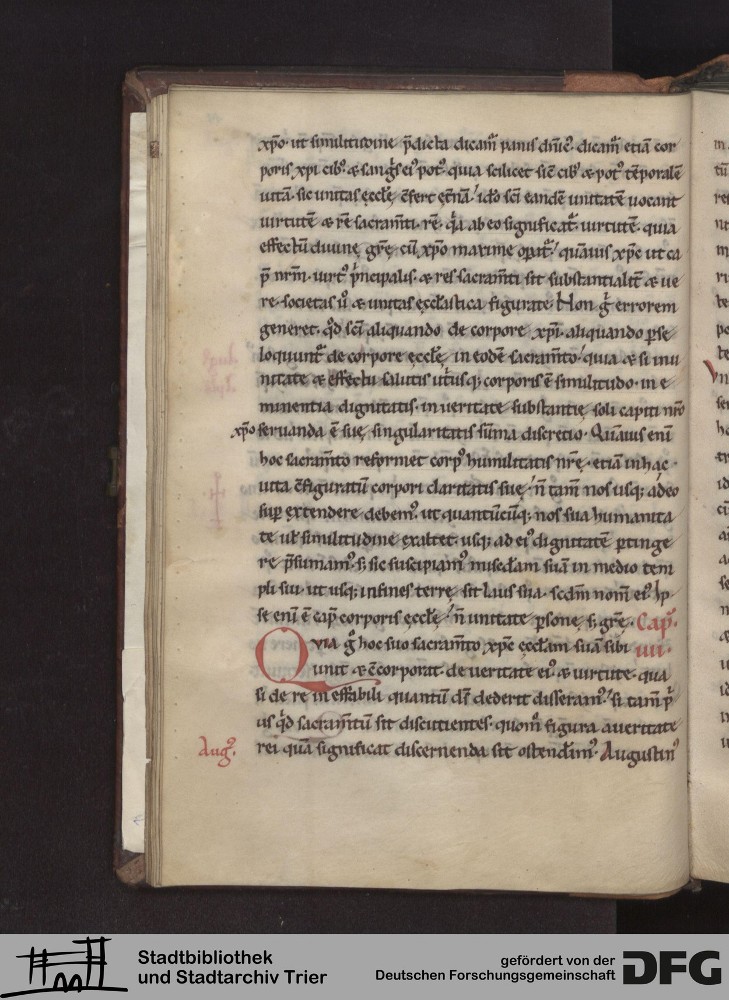 xp̄o· ut similitudine p̄dicta dicam̄ panis dn̄ic᷒· dicam̄ etiā cor
poris xpi cib᷒· & sang̍s ei᷒ pot᷒· quia scilicet sic̄ cib᷒ & pot᷒ tēporalē
uitā· sic unitas ęccłę c̄fert ęt̄nā· ido sc̄i eandē unitatē uocant
uirtutē & rē sacram̄ti· rē· q̍a ab eo significat᷒· uirtutē· quia
effectū diuinę gr̄ę· cū xp̄o maxime opat᷒· quāuis xp̄c ut ca
p̄ nr̄m· uirt᷒ p̍ncipalis· & res sacram̄ti sit substantialit̄ & ue
re· societas u̍ & unitas ęccłastica figurate· Non g̍ errorem
generet· q̍d sc̄i aliquando de corpore xpi· aliquando p̱se
loquunt᷒ de corpore ęccłę· in eodē sacram̄to· quia & si in u
nitate & effectu salutis ut̍usq; corporis ē similitudo· in e
minentia dignitatis· in ueritate substantię· soli capiti nr̄o
xp̄o seruanda ē suę singularitatis sūma discretio· Quāuis eni̅
hoc sacram̄to reformet corp᷒ humilitatis nr̄ę· etiā in hac
uita c̄figuratū corpori claritatis suę· n̄ tam̄ nos usq; adeo
sup extendere debem᷒· ut quantūcūq; nos sua humanita
te uł similitudine exaltet· usq; ad ei᷒ dignitatē p̱tinge
re p̄sumam᷒· s; sic suscipiam᷒ miscđam suā in medio tem
pli sui· ut usq; in fines terrę sit laus sua· scđm nom̄ ei᷒· Ip
se eni̅ ē cap̄ corporis ęccłę· n̄ unitate p̱sonę· s; gr̄ę· Cap̄·
Quia g̍ hoc suo sacram̄to xp̄c ęccłam suā sibi VII·
unit & c̄corporat· de ueritate ei᷒ & uirtute· qua
si de re ineffabili quantū dš dederit disseram᷒· si tam̄ p̍
us q̍d sacram̄tū sit discutientes· quom̊ figura a ueritate
Aug᷒· rei quā significat discernenda sit ostendim᷒· Augustin᷒
Stadtbibliothek
und Stadtarchiv Trier
gefördert von der
Deutschen Forschungsgemeinschaft
DFG